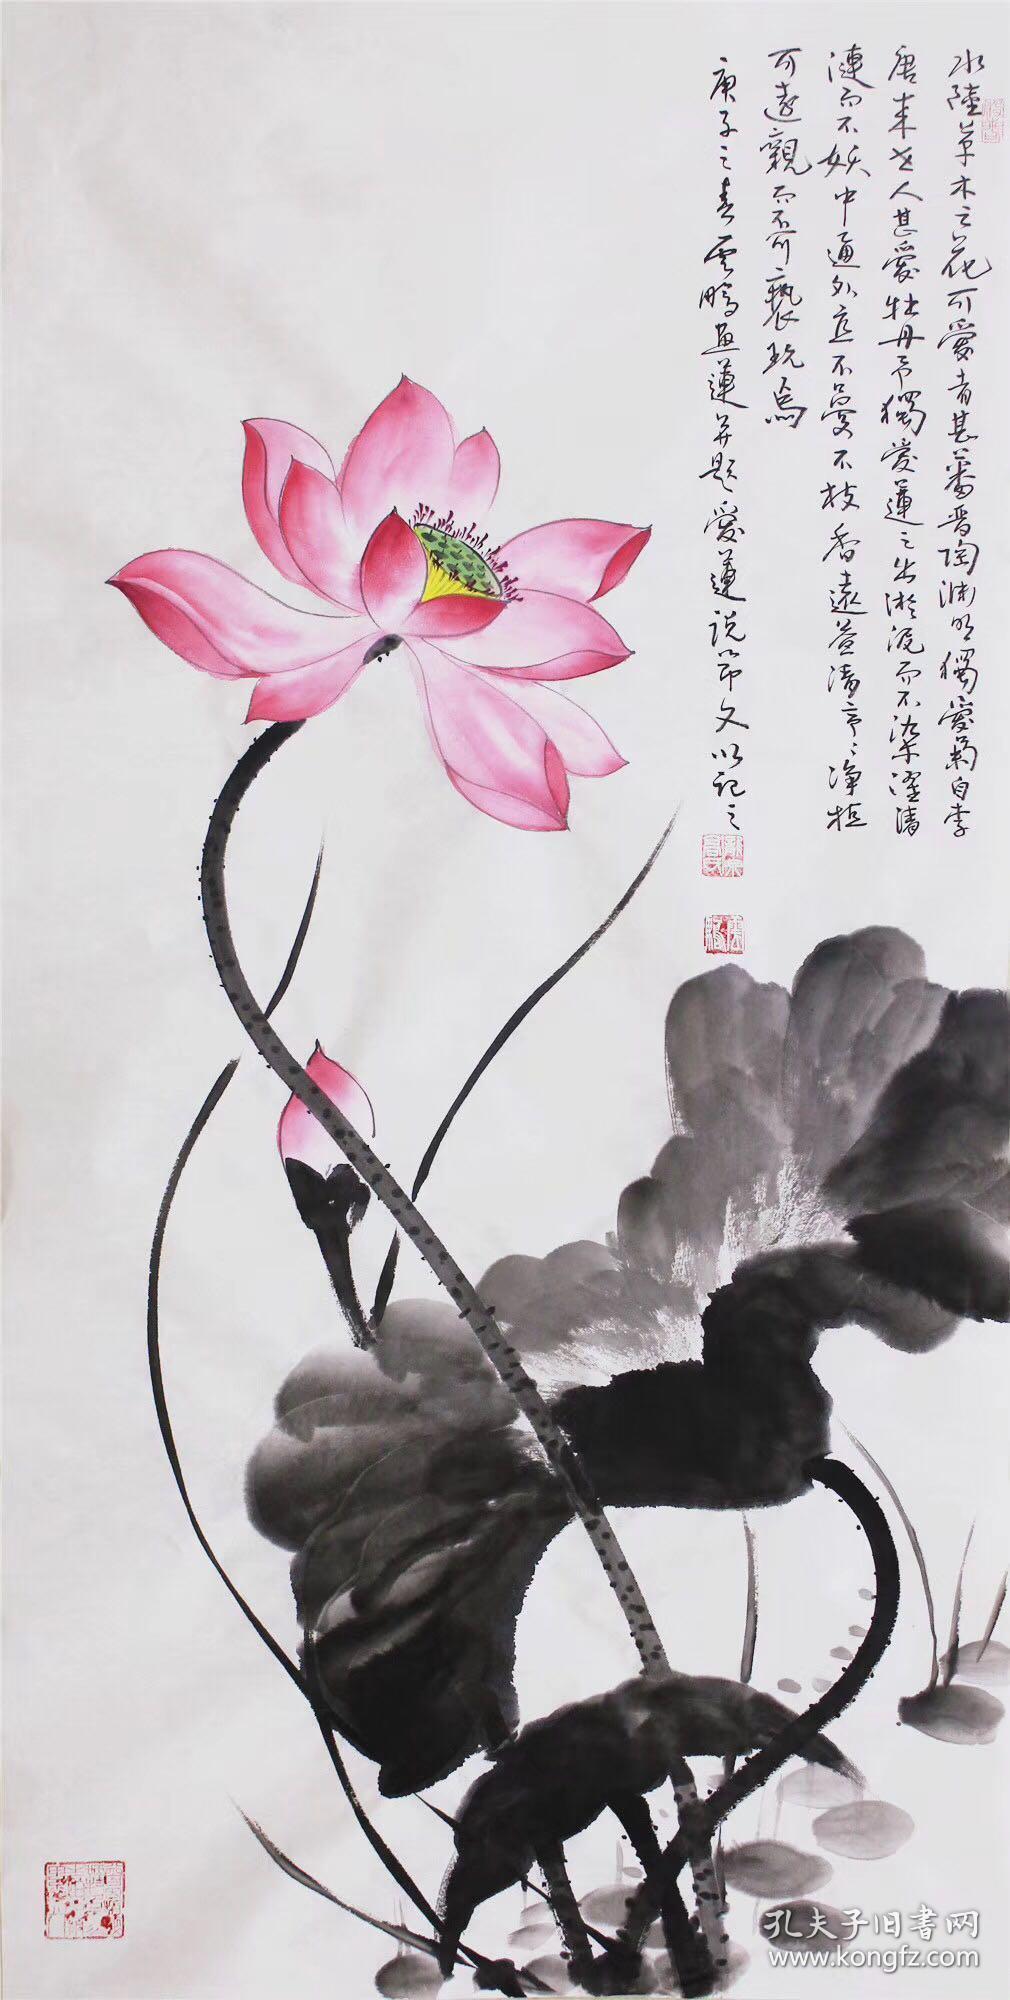 水陸草木之花可愛者甚蕃晋陶渊明獨愛菊自李
唐来世人甚愛牡丹予獨愛蓮之出淤泥而不染濯清
漣而不妖中通外直不蔓不枝香遠益清亭〻淨植
可遠觀而不可褻玩焉
庚子之春雲鵬画蓮并題愛蓮説節文以記之
孔夫子旧書网
www.kongfz.com